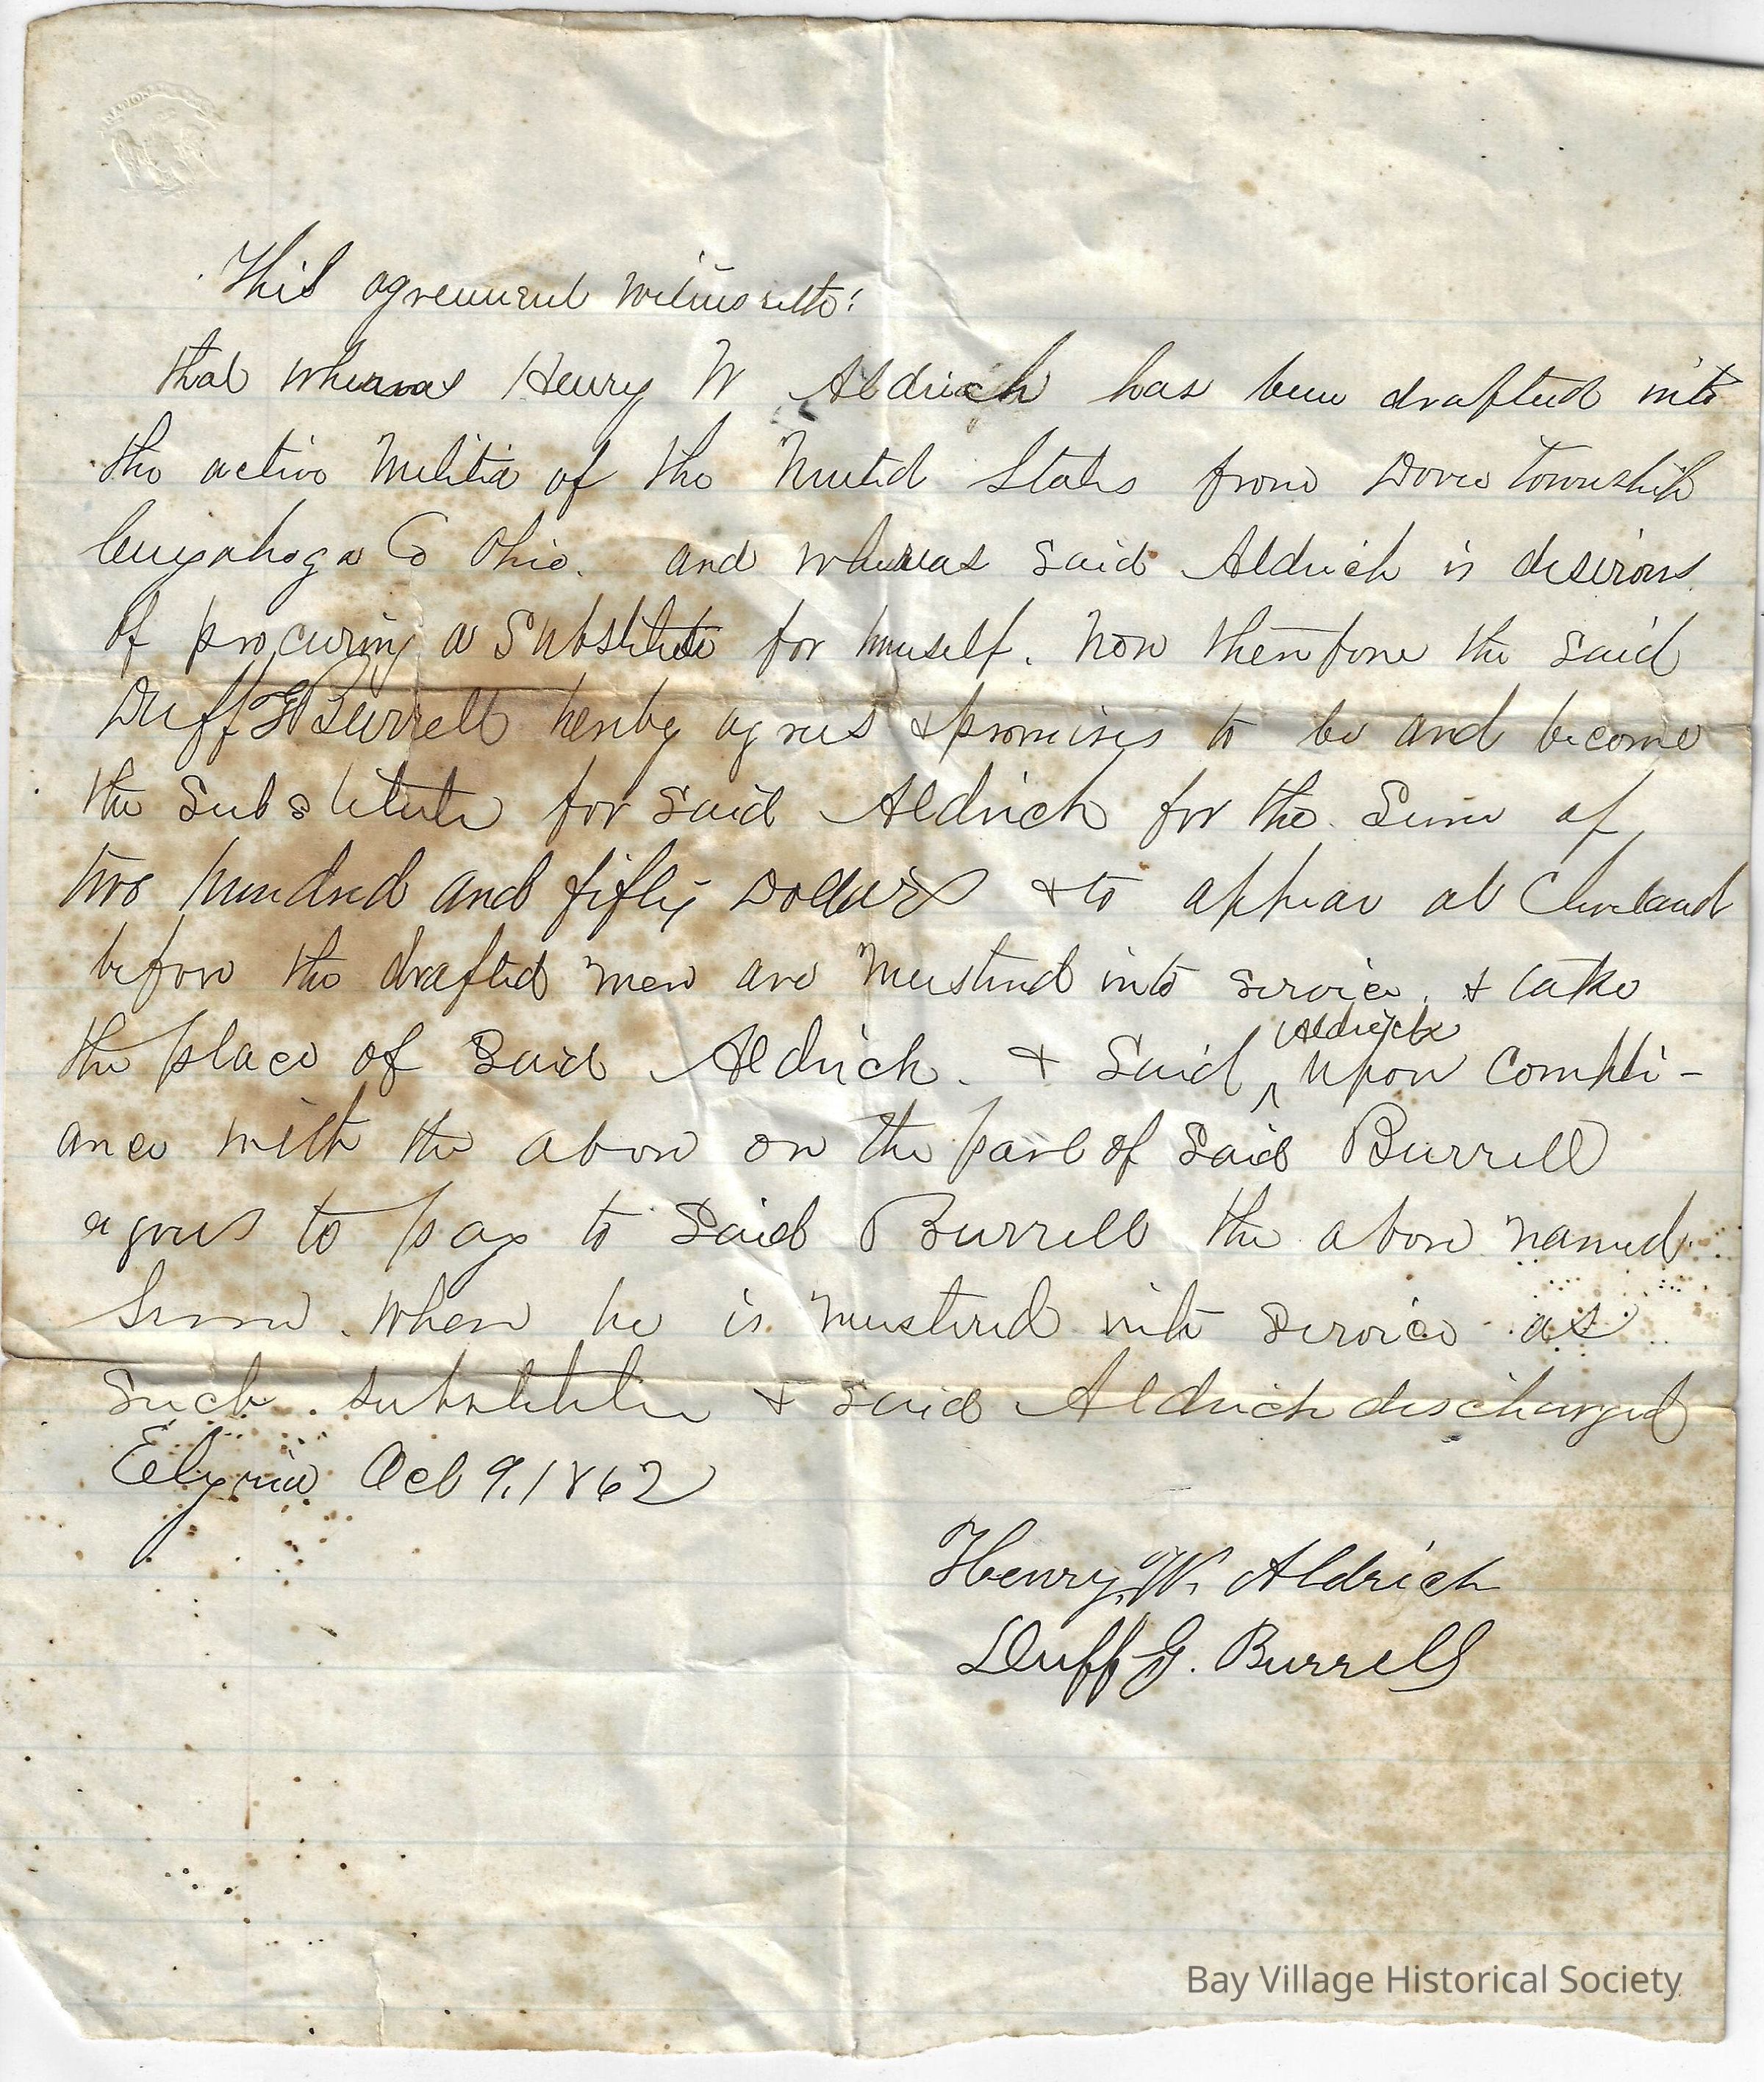 This agreement witnesseth:
that whereas Henry W Aldrich has been drafted into
the active Militia of the United States from Dover Township
Cuyahoga Co Ohio. and whereas said Aldrich is desirous
of procuring a Substitute for himself. Now therefore the said
Duff G Burrell hereby agrees & promises to be and become
the substitute for said Aldrich for the Sum of
two hundred and fifty Dollars & to appear at Cleveland
before the drafted men are Mustered into service. & take
the place of said Aldrich. & said Aldrich upon compli-
ance with the above on the part of said Burrell
agrees to pay to said Burrell the above named
Sum when he is mustered into service as
such substitute & said Aldrich discharged
Elyria Oct 9, 1862
Henry, W. Aldrich
Duff G. Burrell
Bay Village Historical Society